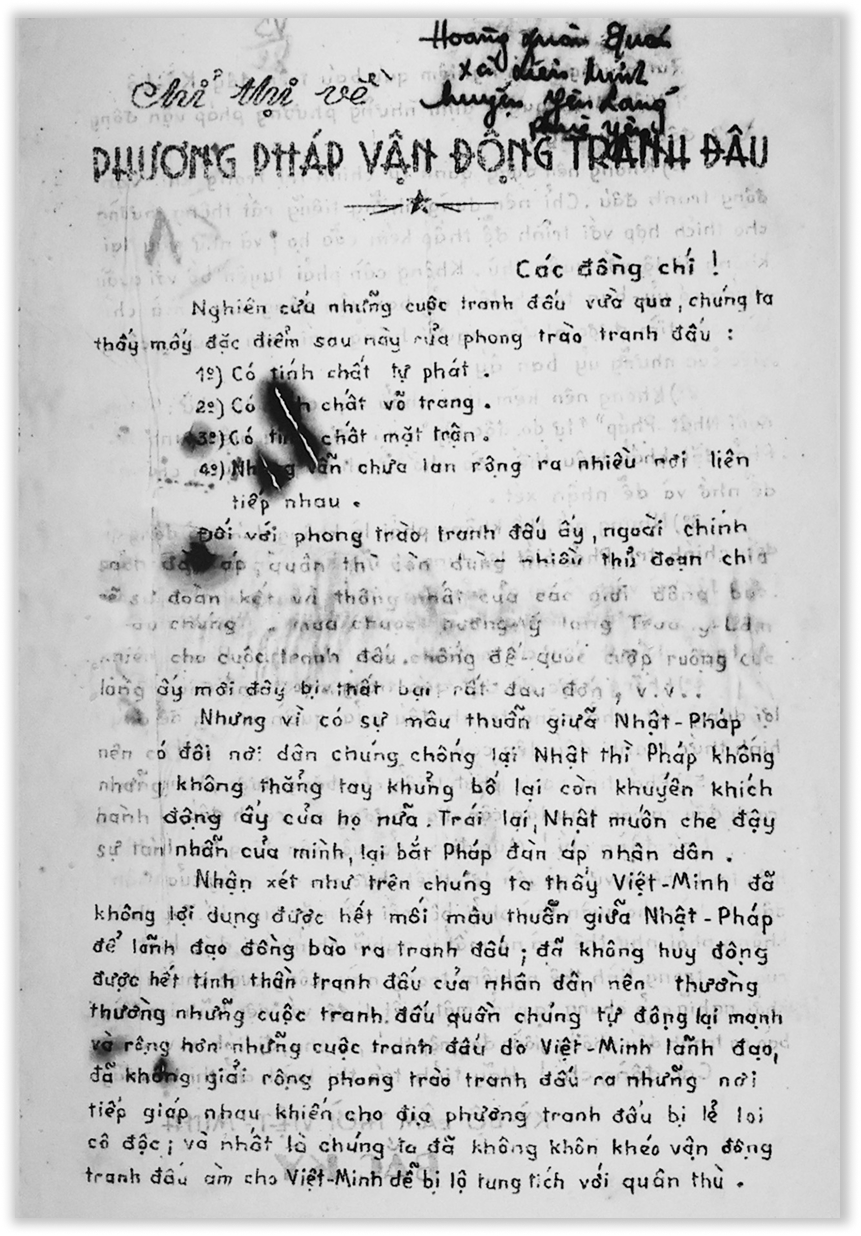 Hoàng quán
xã
huyện Yên Lãng
Phúc Yên
Chỉ thị về
PHƯƠNG PHÁP VẬN ĐỘNG TRANH ĐẤU
Các đồng chí !
Nghiên cứu những cuộc tranh đấu vừa qua, chúng ta
thấy mấy đặc điểm sau này của phong trào tranh đấu :
1º) Có tính chất tự phát .
2º) Có chất võ trang .
3º) Có tính chất mặt trận .
4º) Nhưng vẫn chưa lan rộng ra nhiều nơi liên
tiếp nhau .
Đối với phong trào tranh đấu ấy, ngoài chính
áp, quân thù còn dùng nhiều thủ đoạn chia
rẽ sự đoàn kết và thống nhất của các giới đồng
chúng . mua chuộc hương-lý làng
cho cuộc tranh đấu chống đế-quốc cướp ruộng của
làng ấy mới đây bị thất bại rất đau đớn, v.v..
Nhưng vì có sự mâu thuẫn giữa Nhật-Pháp
nên có đôi nơi dân chúng chống lại Nhật thì Pháp không
những không thẳng tay khủng bố lại còn khuyến khích
hành động ấy của họ nữa. Trái lại, Nhật muốn che đậy
sự tàn nhẫn của mình, lại bắt Pháp đàn áp nhân dân .
Nhận xét như trên chúng ta thấy Việt-Minh đã
không lợi dụng được hết mối mâu thuẫn giữa Nhật-Pháp
để lãnh đạo đồng bào ra tranh đấu ; đã không huy động
được hết tinh thần tranh đấu của nhân dân nên thường
thường những cuộc tranh đấu quần chúng tự động lại mạnh
và rộng hơn những cuộc tranh đấu do Việt-Minh lãnh đạo,
đã không giải rộng phong trào tranh đấu ra những nơi
tiếp giáp nhau khiến cho địa phương tranh đấu bị lẻ loi
cô độc ; và nhất là chúng ta đã không khôn khéo vận động
tranh đấu làm cho Việt-Minh dễ bị lộ tung tích với quân thù .